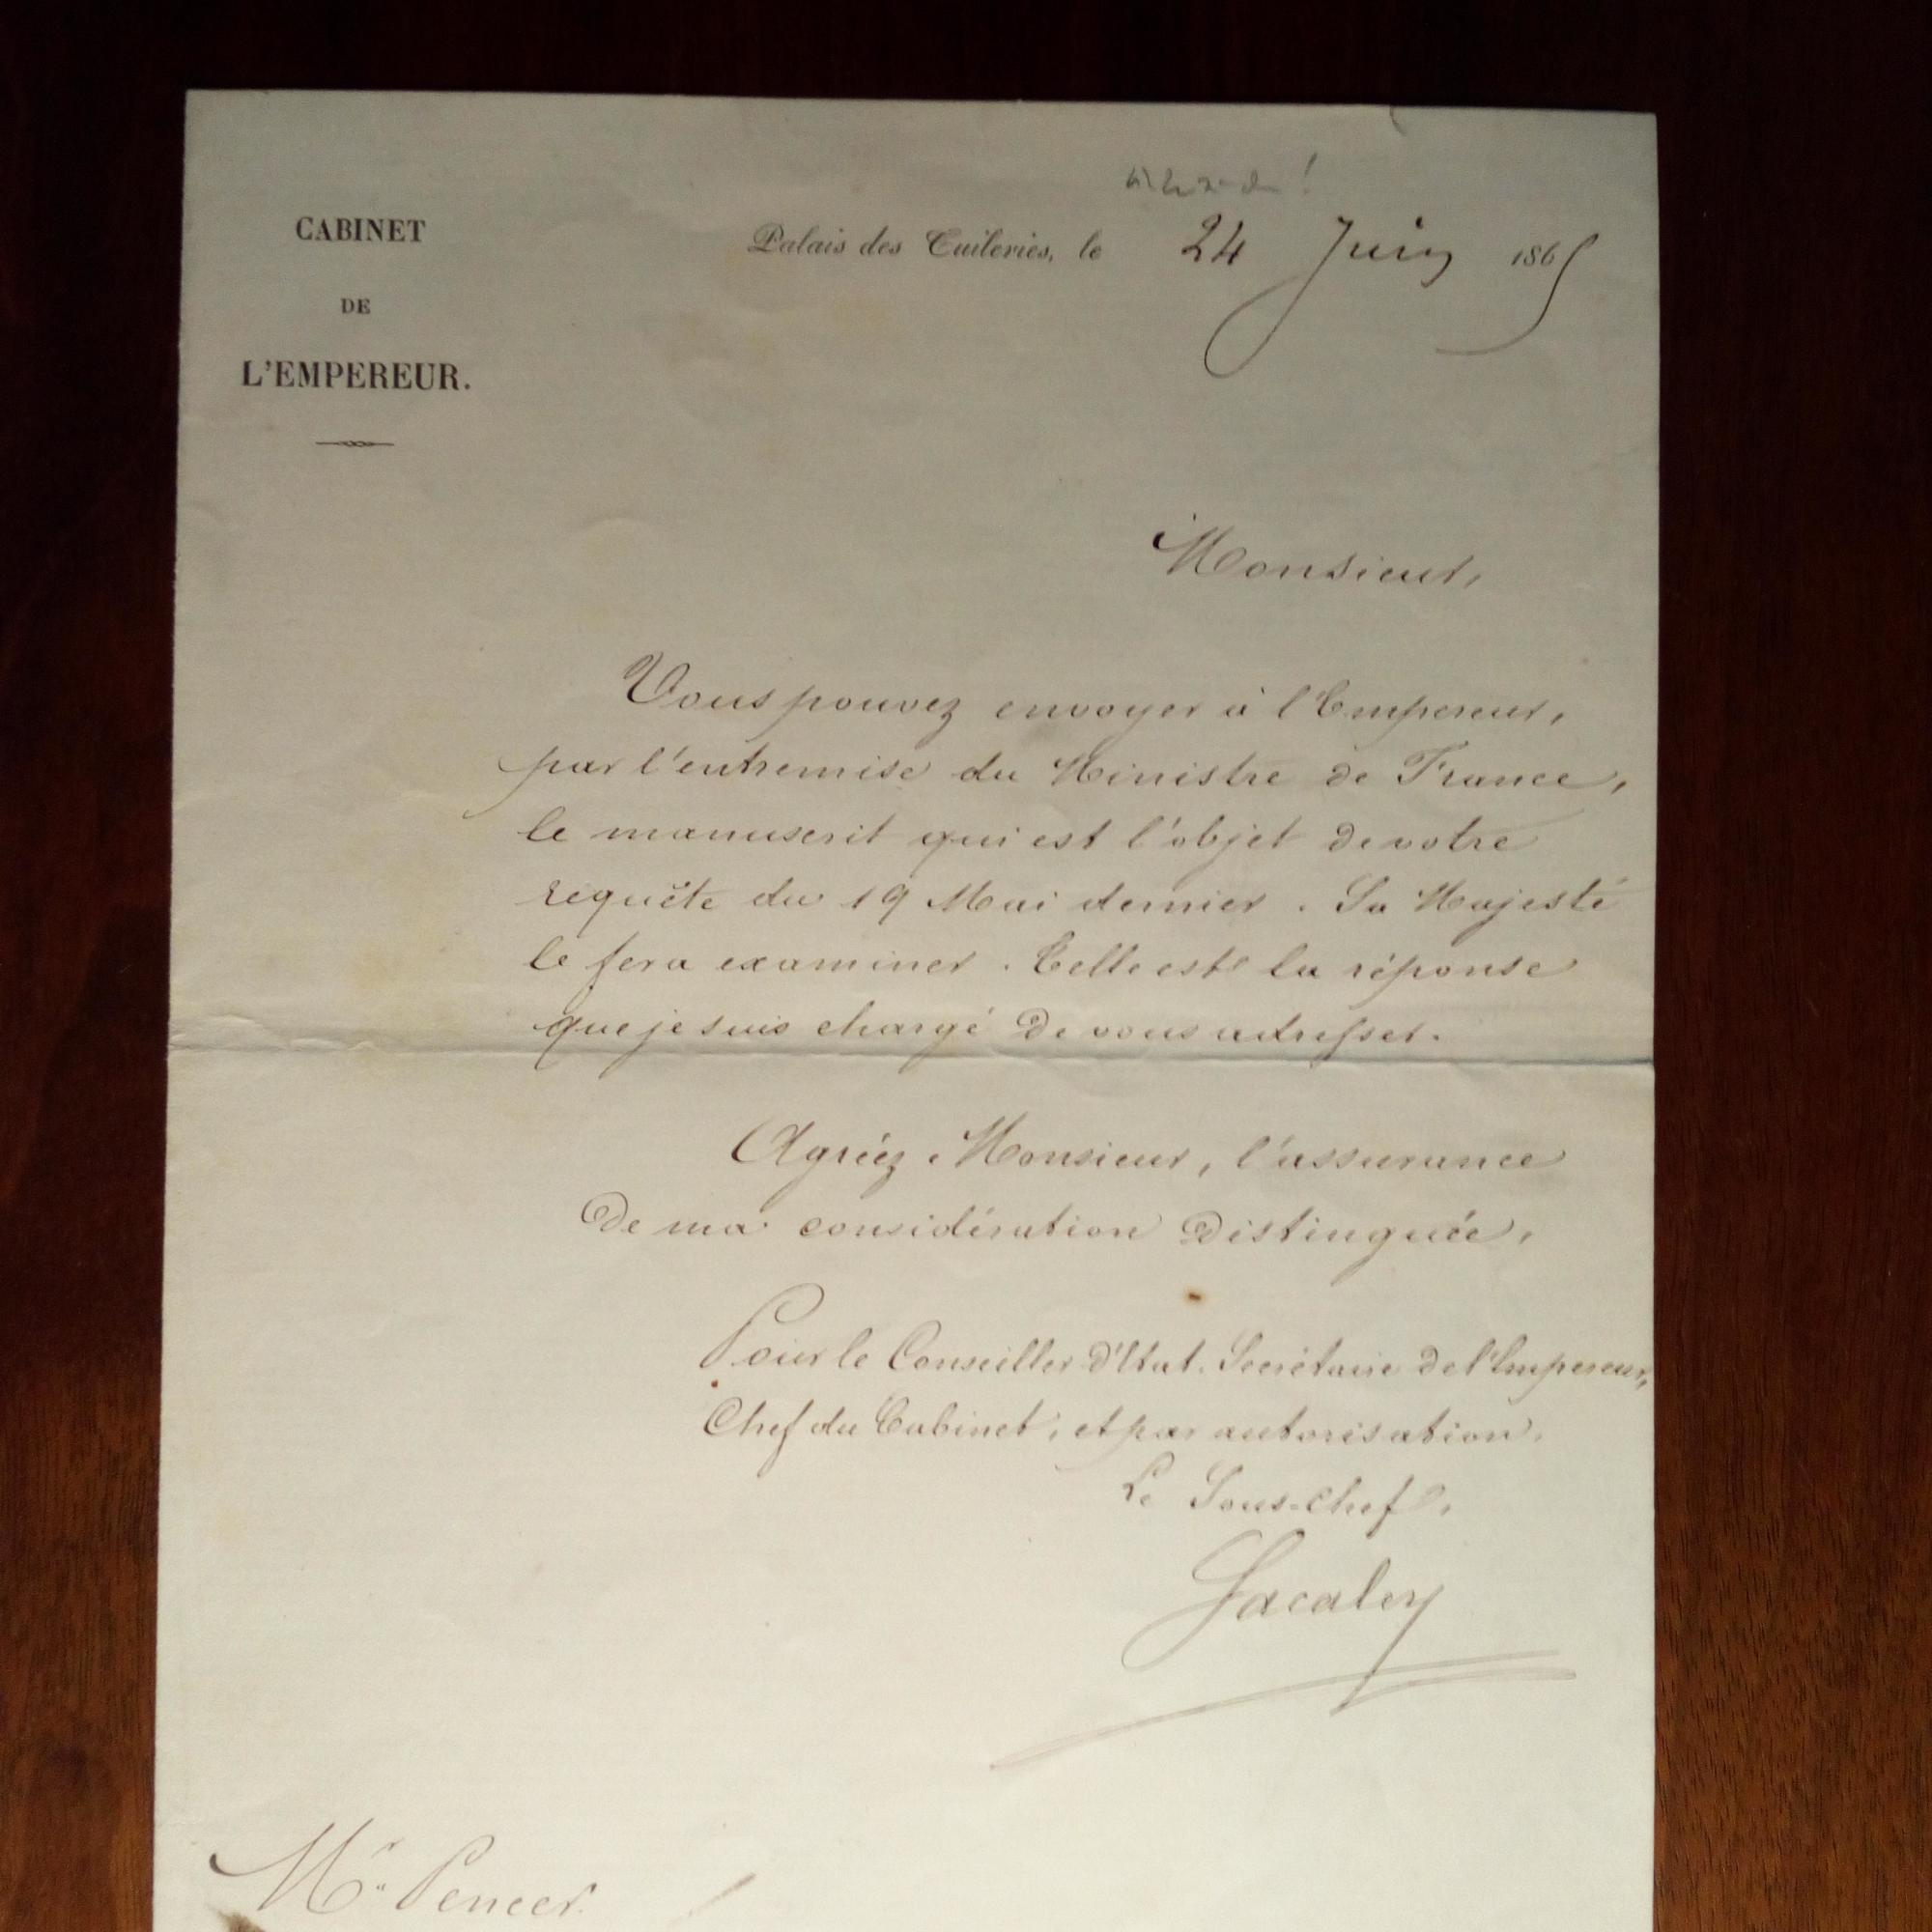 CABINET
DE
L'EMPEREUR.
Palais des Tuileries, le 24 Juin 1865
Monsieur,
Vous pouvez envoyer à l'Empereur,
par l'entremise du Ministre de France,
le manuscrit qui est l'objet de votre
requête du 19 Mai dernier. Sa Majesté
le fera examiner. Telle est la réponse
que je suis chargé de vous adresser.
Agréez Monsieur, l'assurance
de ma considération distinguée,
Pour le Conseiller d'Etat. Secrétaire de l'Empereur,
Chef du Cabinet, et par autorisation,
Le Sous-chef,
Sacaley
Mr. Pencer